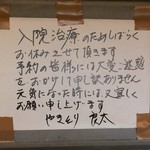 入院治療のためしばらく
お休みさせて頂きます
予約の皆様には大変ご迷惑
をおかけして申し訳ありません
元気になった時には又宜しく
お願い申し上げます
やきとり 良太